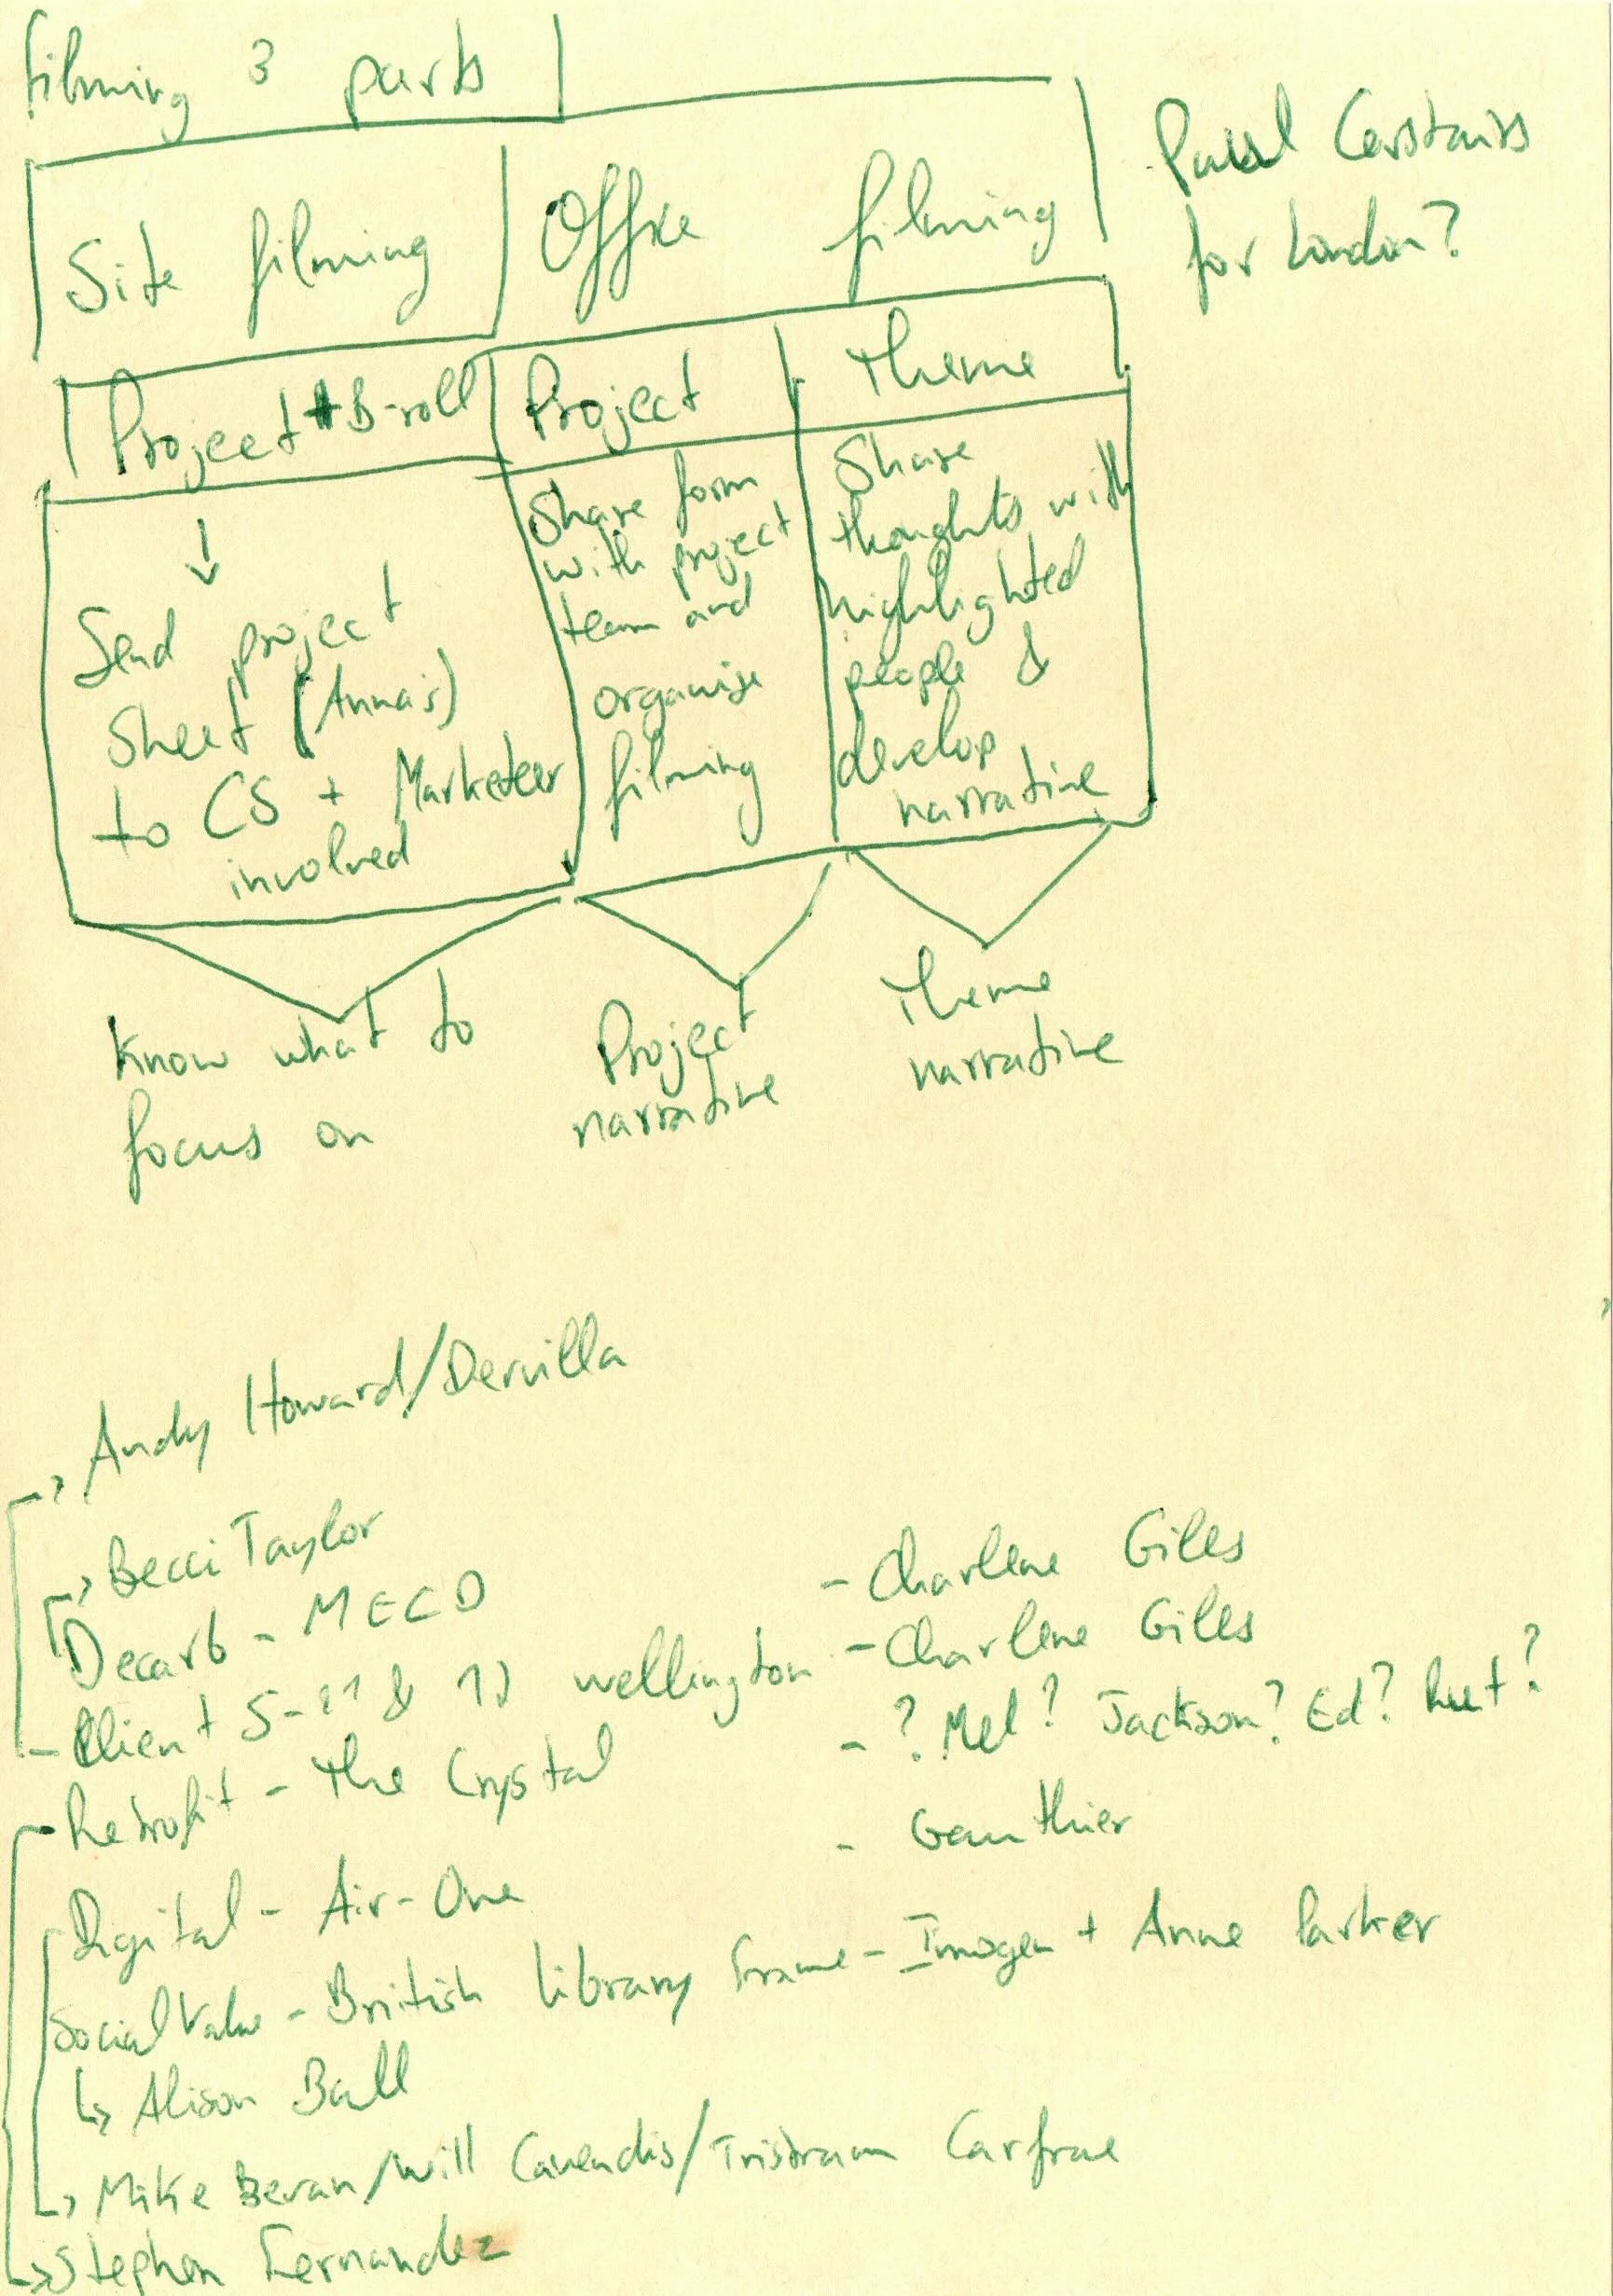 Filming 3 parts
Paul Carstairs
for London?
Site filming
Office filming
Project + B-roll
Project
Theme
Send project
Sheet (Anna's)
to CS + Marketeer
involved
Share form
with project
team and
organise
filming
Share
thoughts with
highlighted
people &
develop
narrative
Know what to
focus on
Project
narrative
Theme
narrative
Andy Howard/Dervilla
Becci Taylor
Decarb - MECD - Charlene Giles
Client 5- & wellington - Charlene Giles
Retrofit - The Crystal - ? Mel? Jackson? Ed?
Digital - Air-One - Gauthier
Social Value - British Library Frame - Imogen + Anne Parker
Alison Ball
Mike Bevan/Will Cavendis/Tristram Carfrae
Stephen Fernandez